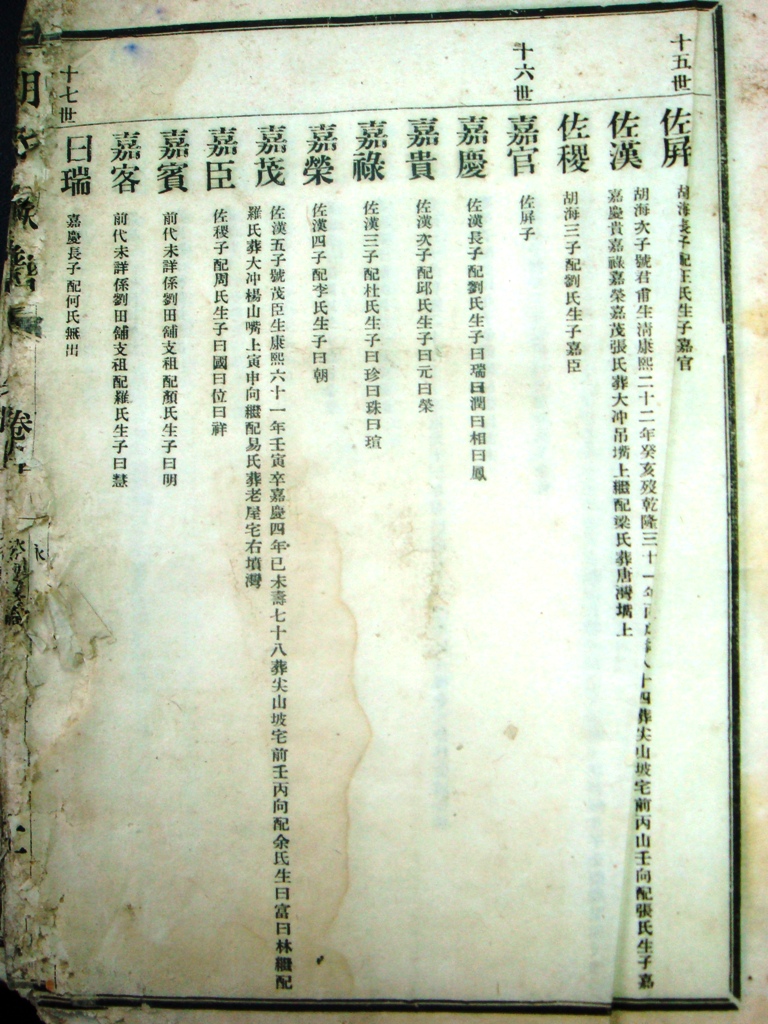 十五世
佐屛
胡海長子配王氏生子嘉官
佐漢
胡海次子號君甫生淸康熙二十二年癸亥歿乾隆三十一年 八十四葬尖山坡宅前丙山壬向配張氏生子嘉
嘉慶貴嘉祿嘉榮嘉茂張氏葬大冲吊嘴上繼配梁氏葬唐灣嘴上
佐稷
胡海三子配劉氏生子嘉臣
十六世
嘉官
佐屛子
嘉慶
佐漢長子配劉氏生子曰瑞曰潤曰相曰鳳
嘉貴
佐漢次子配邱氏生子曰元曰榮
嘉祿
佐漢三子配杜氏生子曰珍曰珠曰瑄
嘉榮
佐漢四子配李氏生子曰朝
嘉茂
佐漢五子號茂臣生康熙六十一年壬寅卒嘉慶四年已未壽七十八葬尖山坡宅前壬丙向配余氏生曰富曰林繼配
羅氏葬大冲楊山嘴上寅申向繼配易氏葬老屋宅右墳灣
嘉臣
佐稷子配周氏生子曰國曰位曰祥
嘉賓
前代未詳係劉田舖支祖配顏氏生子曰明
嘉客
前代未詳係劉田舖支祖配羅氏生子曰慧
十七世
曰瑞
嘉慶長子配何氏無出